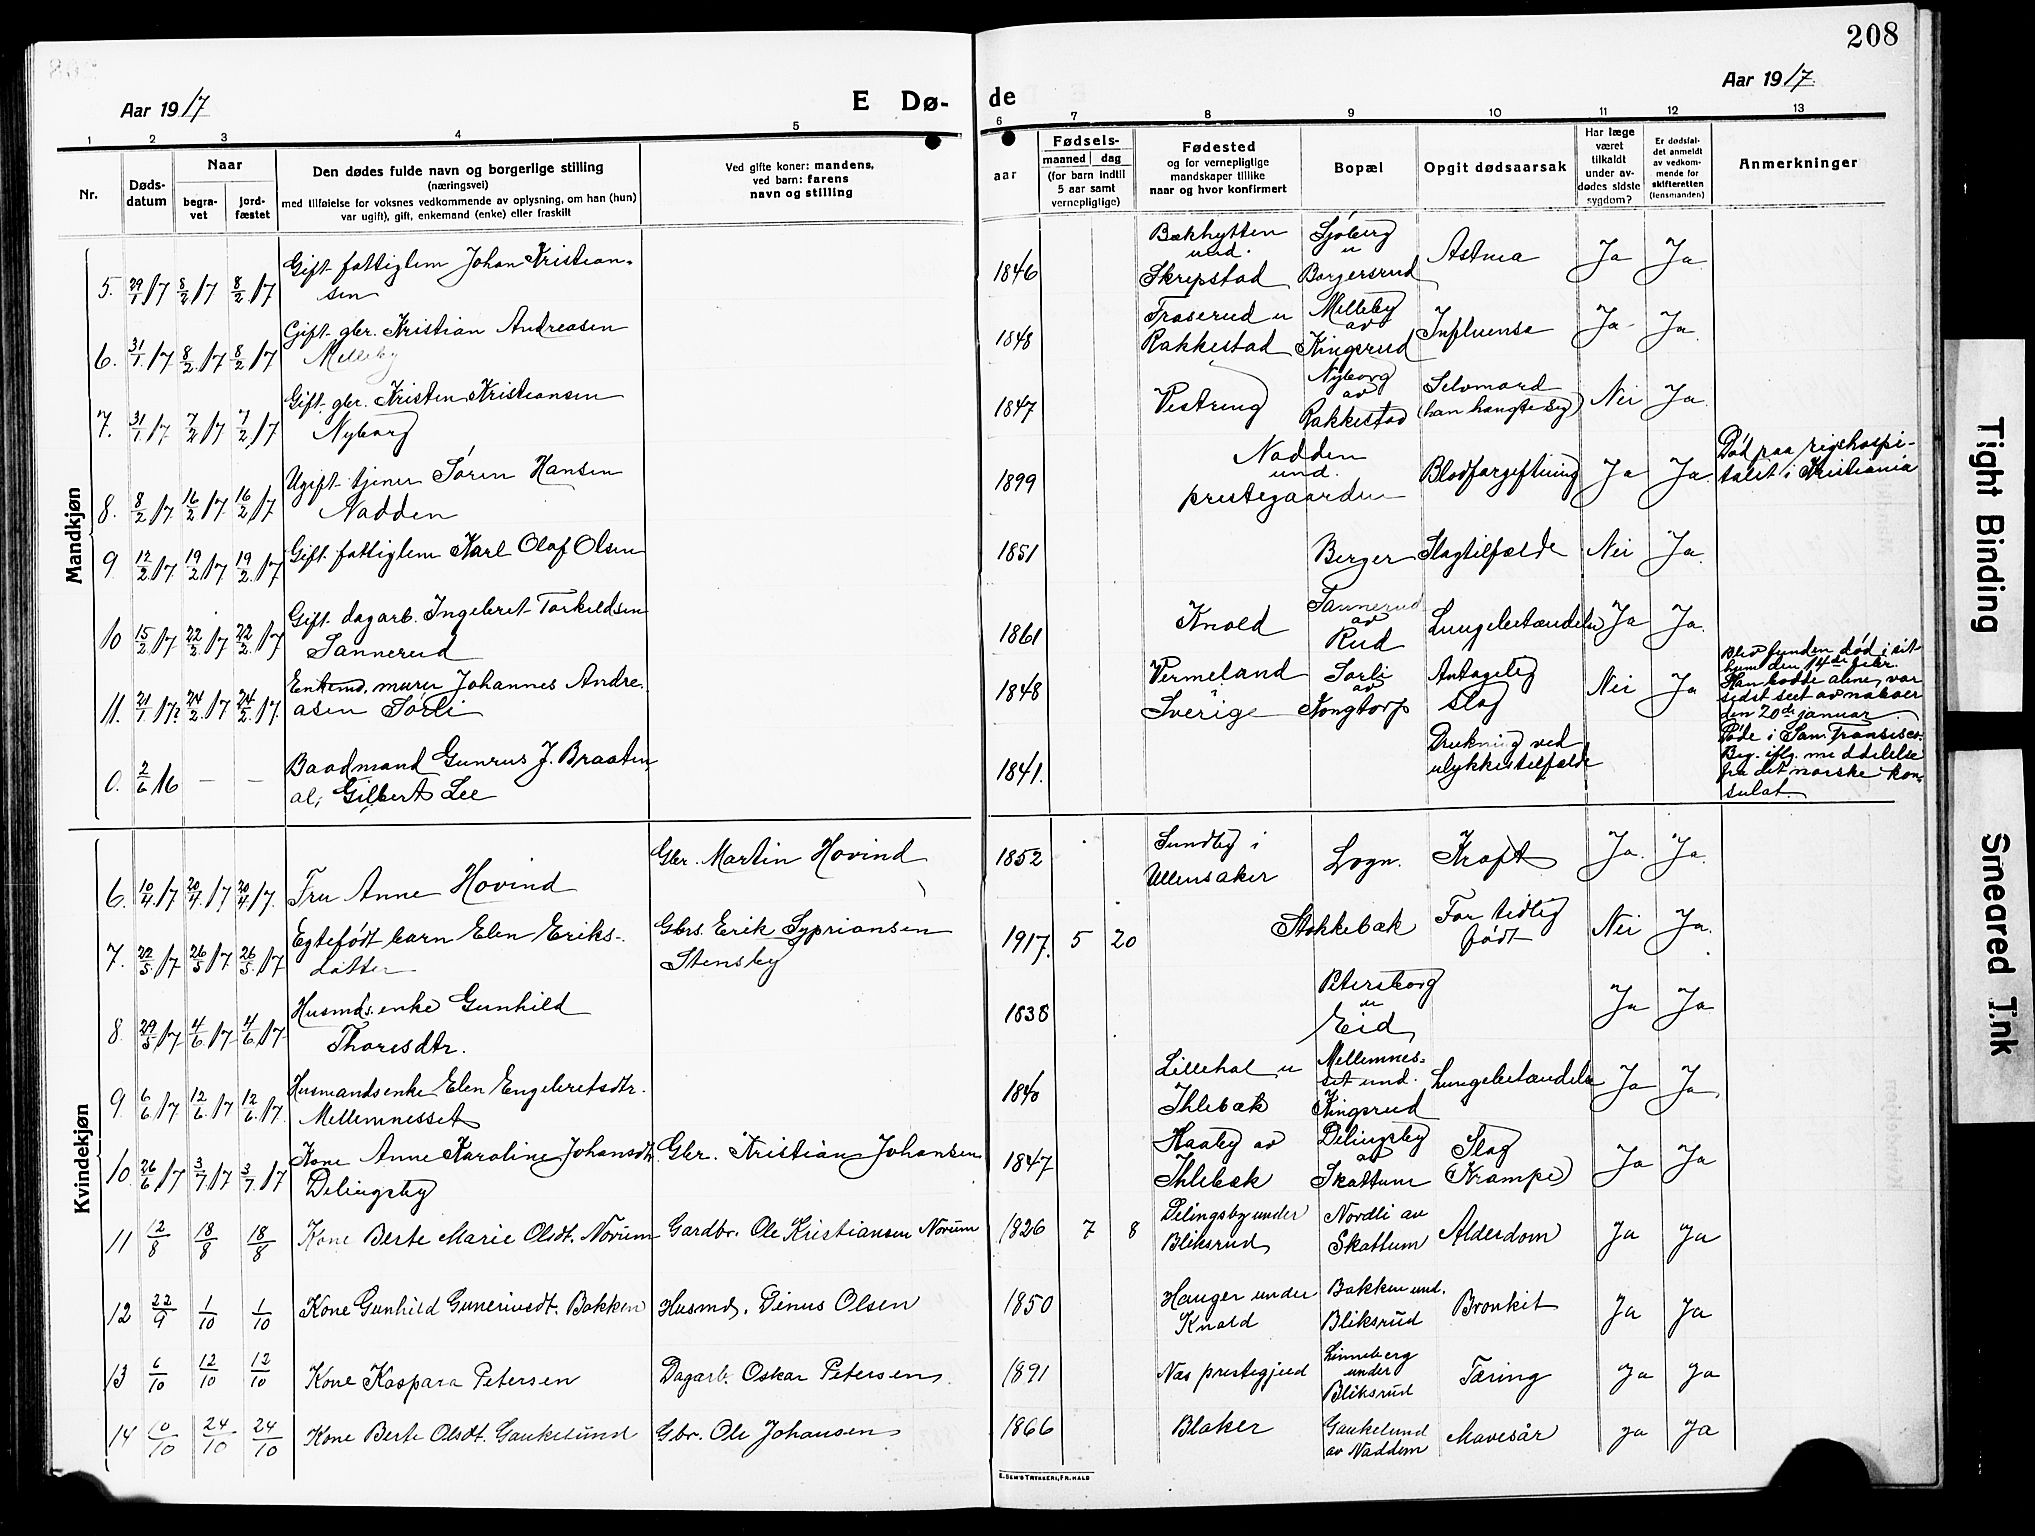 208
Aar 1917
E Dø-
de
Aar 1917
1 2 3 4 5 6 7 8 9 10 11 12 13
Nr.
Døds-
datum
Naar
begra-
vet
jord-
fæstet
Den dødes fulde navn og borgerlige stilling
(næringsvei)
med tilføielse for voksnes vedkommende av oplysning, om han (hun)
var ugift), gift, enkemand (enke) eller fraskilt
Ved gifte koner: mandens,
ved barn: farens
navn og stilling
Fødsels-
aar
maaned dag
(for barn indtil
5 aar samt
vernepligtige)
Fødested
og for vernepligtige
mandskaper tillike
naar og hvor konfirmert
Bopæl
Opgit dødsaarsak
Har læge
været
tilkaldt
under av-
dødes sidste
sygdom?
Er dødsfal-
det anmeldt
av vedkom-
mende for
skifteretten
(lensmanden)
Anmerkninger
Mandkjøn
5. 29/1 17 8/2 17 8/2 17 Gift fattiglem Johan Kristian-
sen
1846 Bækhytten
und.
Skrepstad
Sjøberg
u
Borgersrud
Astma Ja Ja
6. 31/1 17 8/2 17 8/2 17 Gift gbr. Kristian Andreasen
Melleby
1848 Fraserud u
Rakkestad
Melleby
av
Kingsrud
Influensa Ja Ja.
7. 31/1 17 7/2 17 7/2 17 Gift gbr. Kristen Kristiansen
Nyborg
1847 Vestreng
Nyborg
av
Rakkestad
Selvmord
(han hængte sig)
Nei Ja.
8. 8/2 17 16/2 17 16/2 17 Ugift tjener Søren Hansen
Nadden
1899 Nadden
und.
prestegaarden
Blodforgiftning Ja Ja.
Død paa rigshospi-
talet i Kristiania
9 12/2 17 19/2 17 19/2 17 Gift fattiglem Karl Olaf Olsen
1851 Berger Slagtilfælde Nei Ja.
10 15/2 17 22/2 17 22/2 17 Gift dagarb. Ingebret Torkildsen
Sannerud
1861 Knold
Sannerud
av
Rud
Lungebetændelse Ja Ja.
11. 21/1 17? 24/2 17 24/2 17. Enkemd. murer Johannes Andre-
asen Sørli
1848 Vermeland
Sverige
Sørli
av
Kongtorp
Antagelig
slag
Nei Ja
Blev funden død i sit
hjem den 14de febr.
Han bodde alene, var
sidst seet av naboer
den 20de januar.
0. 2/6 16 — — Baadmand Gunrus J. Braaten,
al; Gilbert Lee
1841.
Drukning ved
ulykkestilfælde
Døde i San Fransisco.
Beg. iflg. meddelelse
fra det norske kon-
sulat.
Kvindekjøn
6. 10/4 17 20/4 17 20/4 17. Fru Anne Hovind
Gbr. Martin Hovind
1852 Sundby i
Ullensaker
Logn. Kræft Ja. Ja.
7. 22/5 17 26/5 17 26/5 17 Egtefødt barn Elen Eriks-
datter
Gbrs. Erik Sypriansen
Stensby
1917. 5 20 Stokkebæk
For tidlig
født
Nei Ja.
8 29/5 17 4/6 17 4/6 17 Husmds. enke Gunhild
Thoresdtr.
1838
Petersborg
u
Eid
Ja Ja
9 6/6 17 12/6 17 12/6 17. Husmandsenke Elen Engebretsdtr.
Mellemnesset
1840 Lillehol u
Ihlebæk
Mellemnes-
set und.
Kingsrud
Lungebetændelse Ja Ja
10. 26/6 17 3/7 17 3/7 17 Kone Anne Karoline Johansdtr.
Delingsby
Gbr. Kristian Johansen
1847 Haaby av
Ihlebæk
Delingsby
av
Skattum
Slag
(Krampe)
Ja Ja
11 12/8 18/8 18/8 Kone Berte Marie Olsdt. Norum
Gardbr. Ole Kristiansen Norum
1826 7 8 Delingsby under
Bliksrud
Nordli av
Skattum
Alderdom Ja Ja
12 22/9 1/10 1/10 Kone Gunhild Guneriusdt. Bakken
Husmd. Dinus Olsen
1850 Hauger under
Knold
Bakken und.
Bliksrud
Bronkit Ja Ja
13 6/10 12/10 12/10 Kone Kaspara Petersen
Dagarb. Oskar Petersen.
1891 Næs prestegjeld
Linneberg
under
Bliksrud
Tæring Ja Ja
14 10/10 24/10 24/10 Kone Berte Olsdt. Gaukelund
Gbr. Ole Johansen
1866 Blaker
Gaukelund
av Naddem
Mavesår Ja Ja
Tight Binding
Smeared Ink